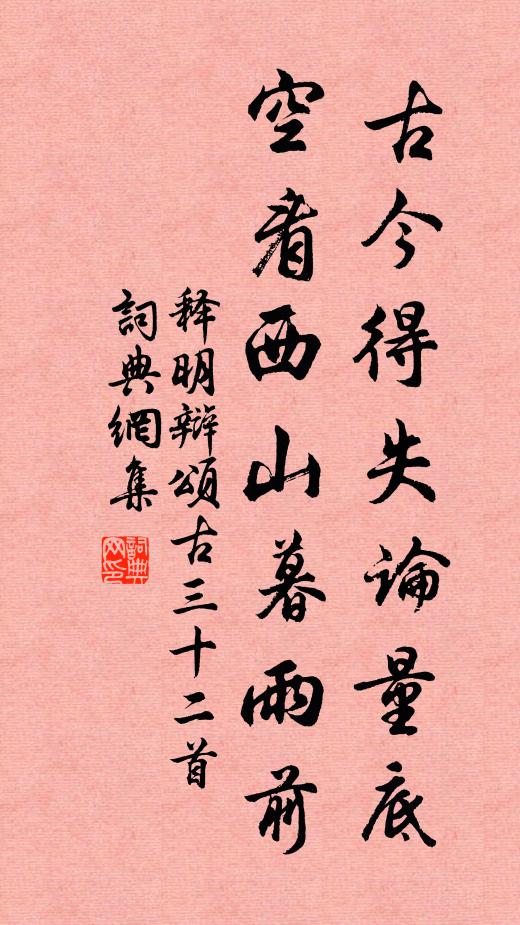 古今得失論量底
空看西山暮雨前
释明辯頌古三十二首
詞典網集
詞典網印